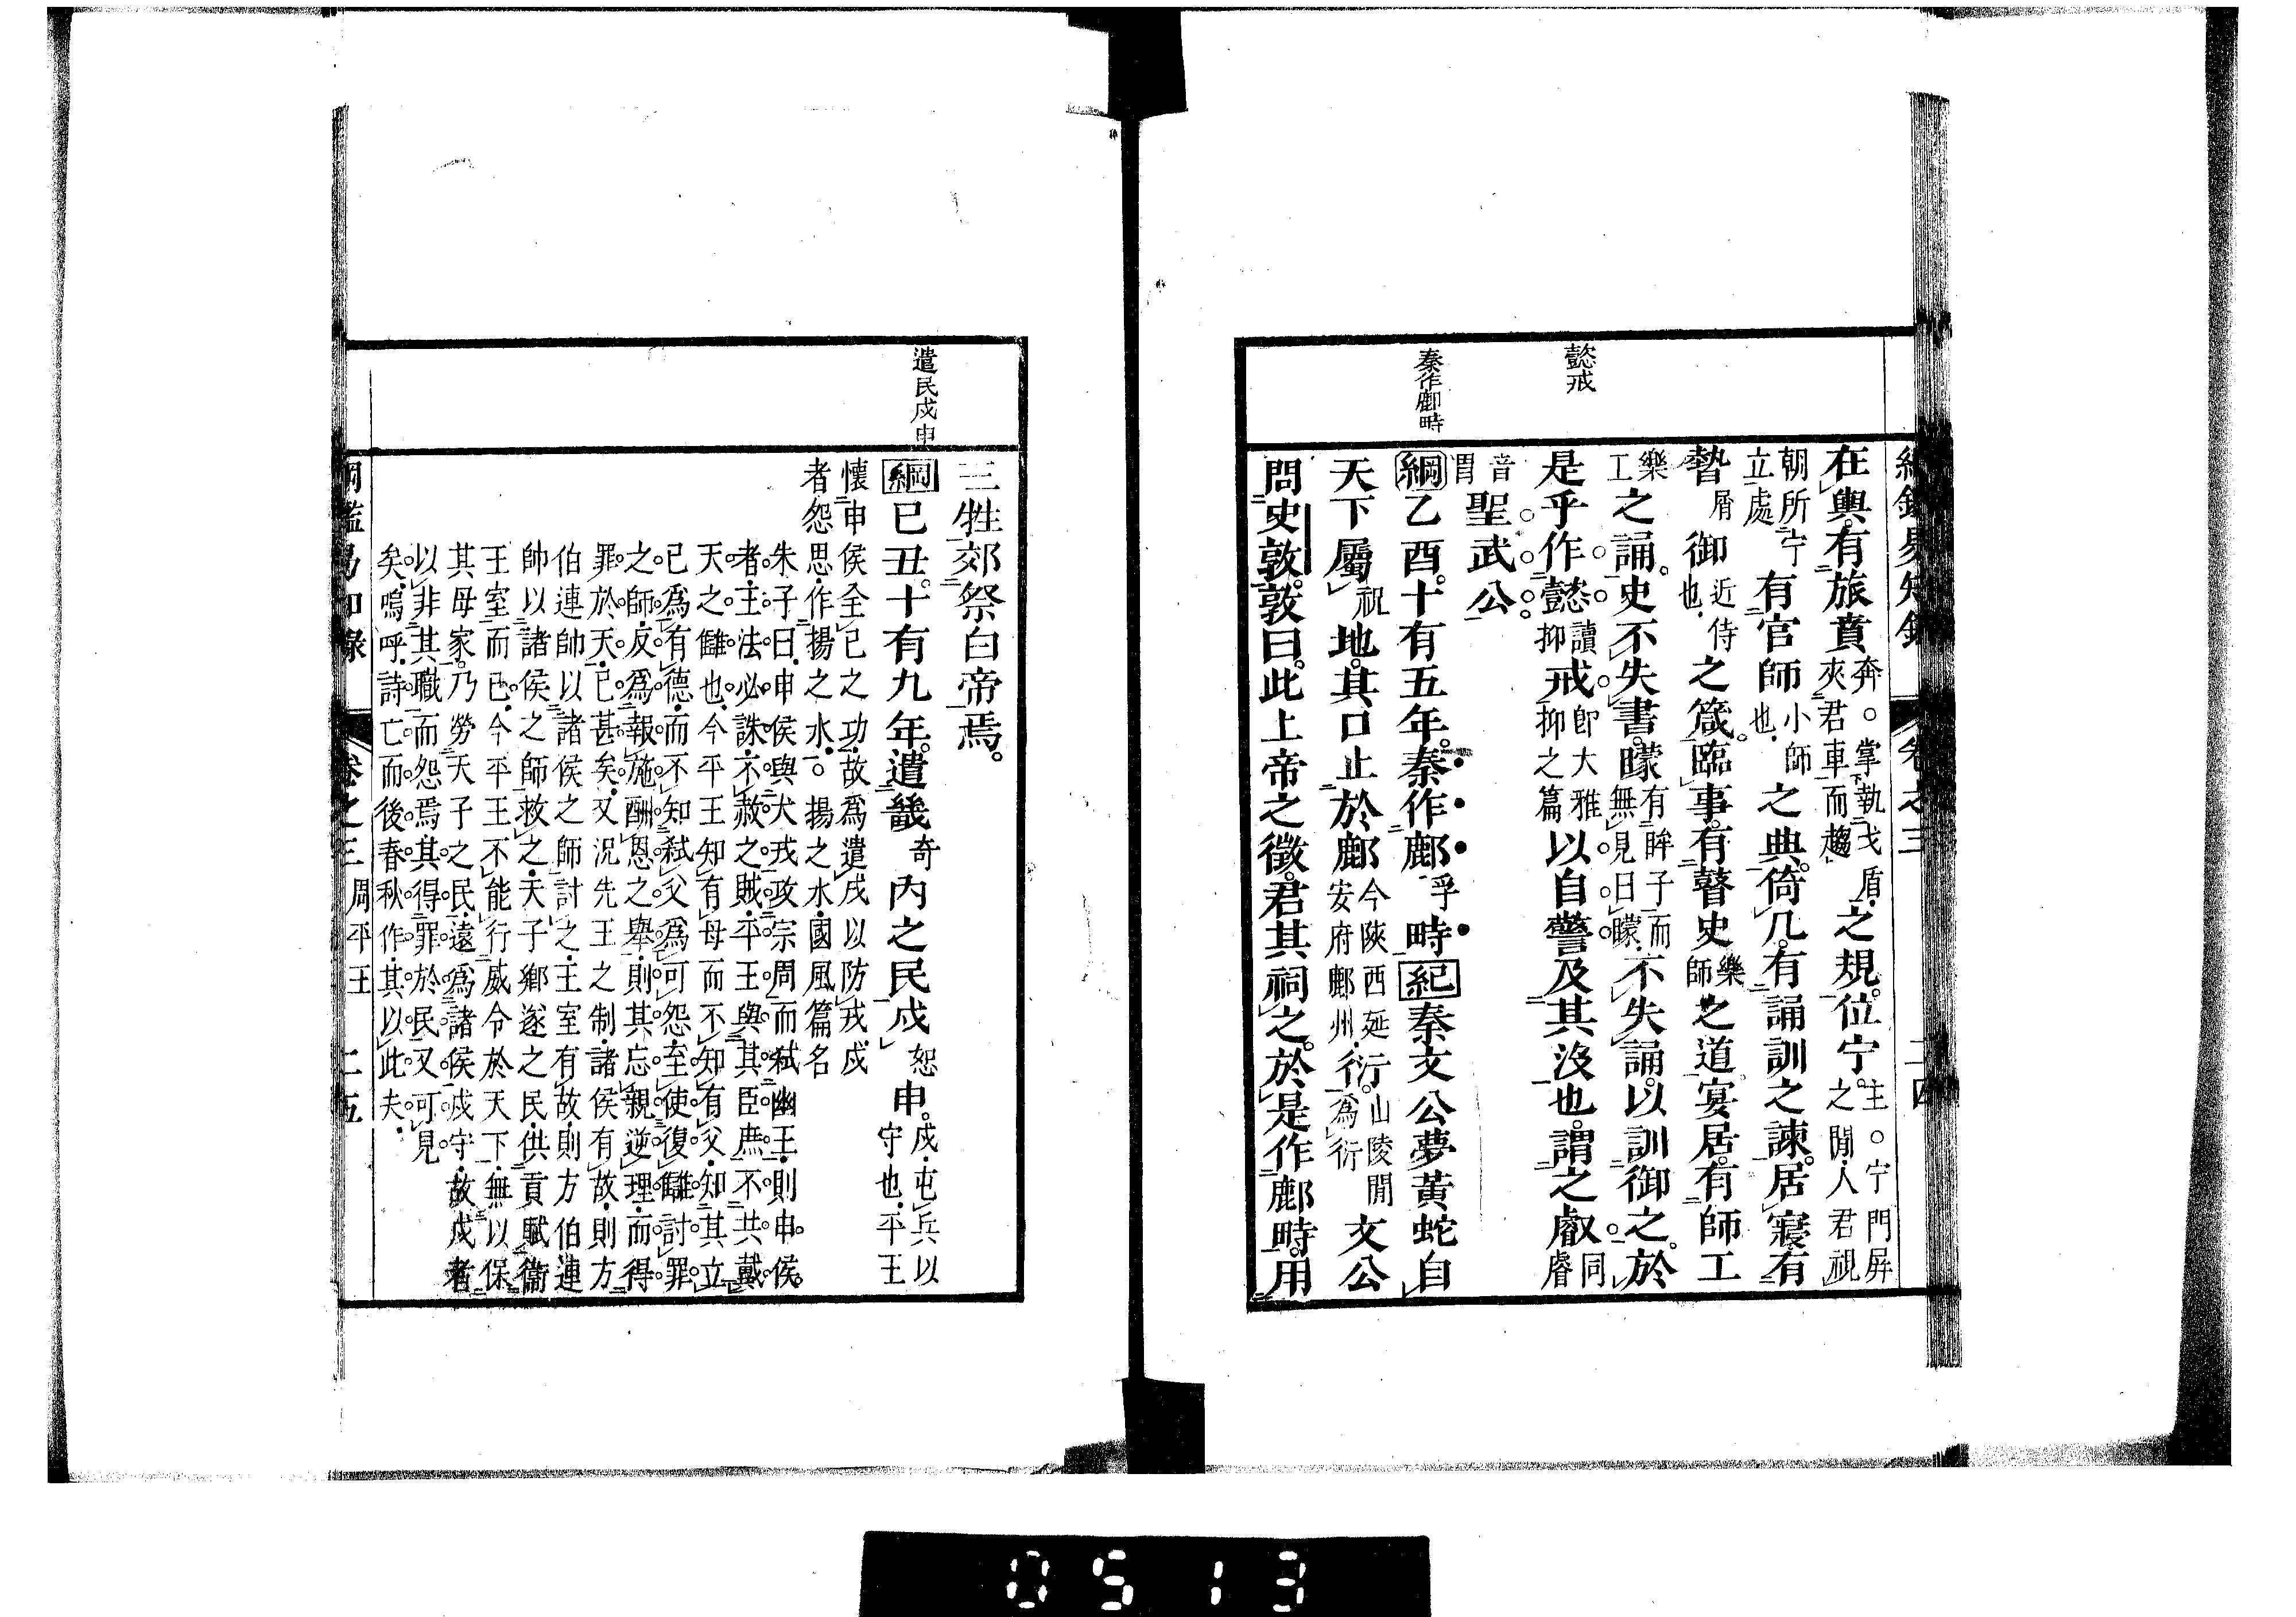 綱鑑易知錄 卷之三 二四
懿戒
秦作鄜畤
在輿。有旅賁奔。○掌執戈盾。夾君車而趨之規。位宁。主。○宁門屏之閒。人君視
朝所宁立處有官師小師也。之典。倚几。有誦訓之諫。居寢有
暬屑御近侍也。之箴。臨事。有瞽史樂師之道。宴居。有師工
樂工之誦。史不失書。矇有眸子而無見曰矇。不失誦。以訓御之。於
是乎作懿讀抑戒卽大雅抑之篇以自警。及其沒也。謂之叡同睿
音胃聖武公。
綱乙酉。十有五年。秦作鄜孚畤紀秦文公夢黃蛇自
天下屬祝地。其口止於鄜今陝西延安府鄜州。衍。山陵閒爲衍文公
問史敦。敦曰。此上帝之徵。君其祠之。於是作鄜畤。用
遣民戍申
三牲郊祭白帝焉。
綱己丑。十有九年。遣畿奇內之民戍恕申。戍。屯兵以守也。平王
懷申侯全己之功。故爲遣戍以防戎。戍
者怨思。作揚之水。○揚之水。國風篇名
朱子曰。申侯與犬戎政宗周而弑幽王。則申侯
者。王法必誅不赦之賊。平王與其臣庶不共戴
天之讎也。今平王知有母而不知有父。知其立
已爲有德。而不知弑父爲可怨。至使復讎討罪
之師。反爲報施酬恩之舉。則其忘親逆理。而得
罪於天已甚矣。又況先王之制。諸侯有故。則方
伯連帥以諸侯之師討之。王室有故。則方伯連
帥以諸侯之師救之。天子鄉遂之民。供貢賦衞
王室而已。今平王不能行威令於天下。無以保
其母家。乃勞天子之民。遠爲諸侯戍守。故戍者
以非其職而怨焉。其得罪於民。又可見
矣。嗚呼。詩亡而後春秋作。其以此夫。
綱鑑易知錄 卷之三 周平王 二五
0513